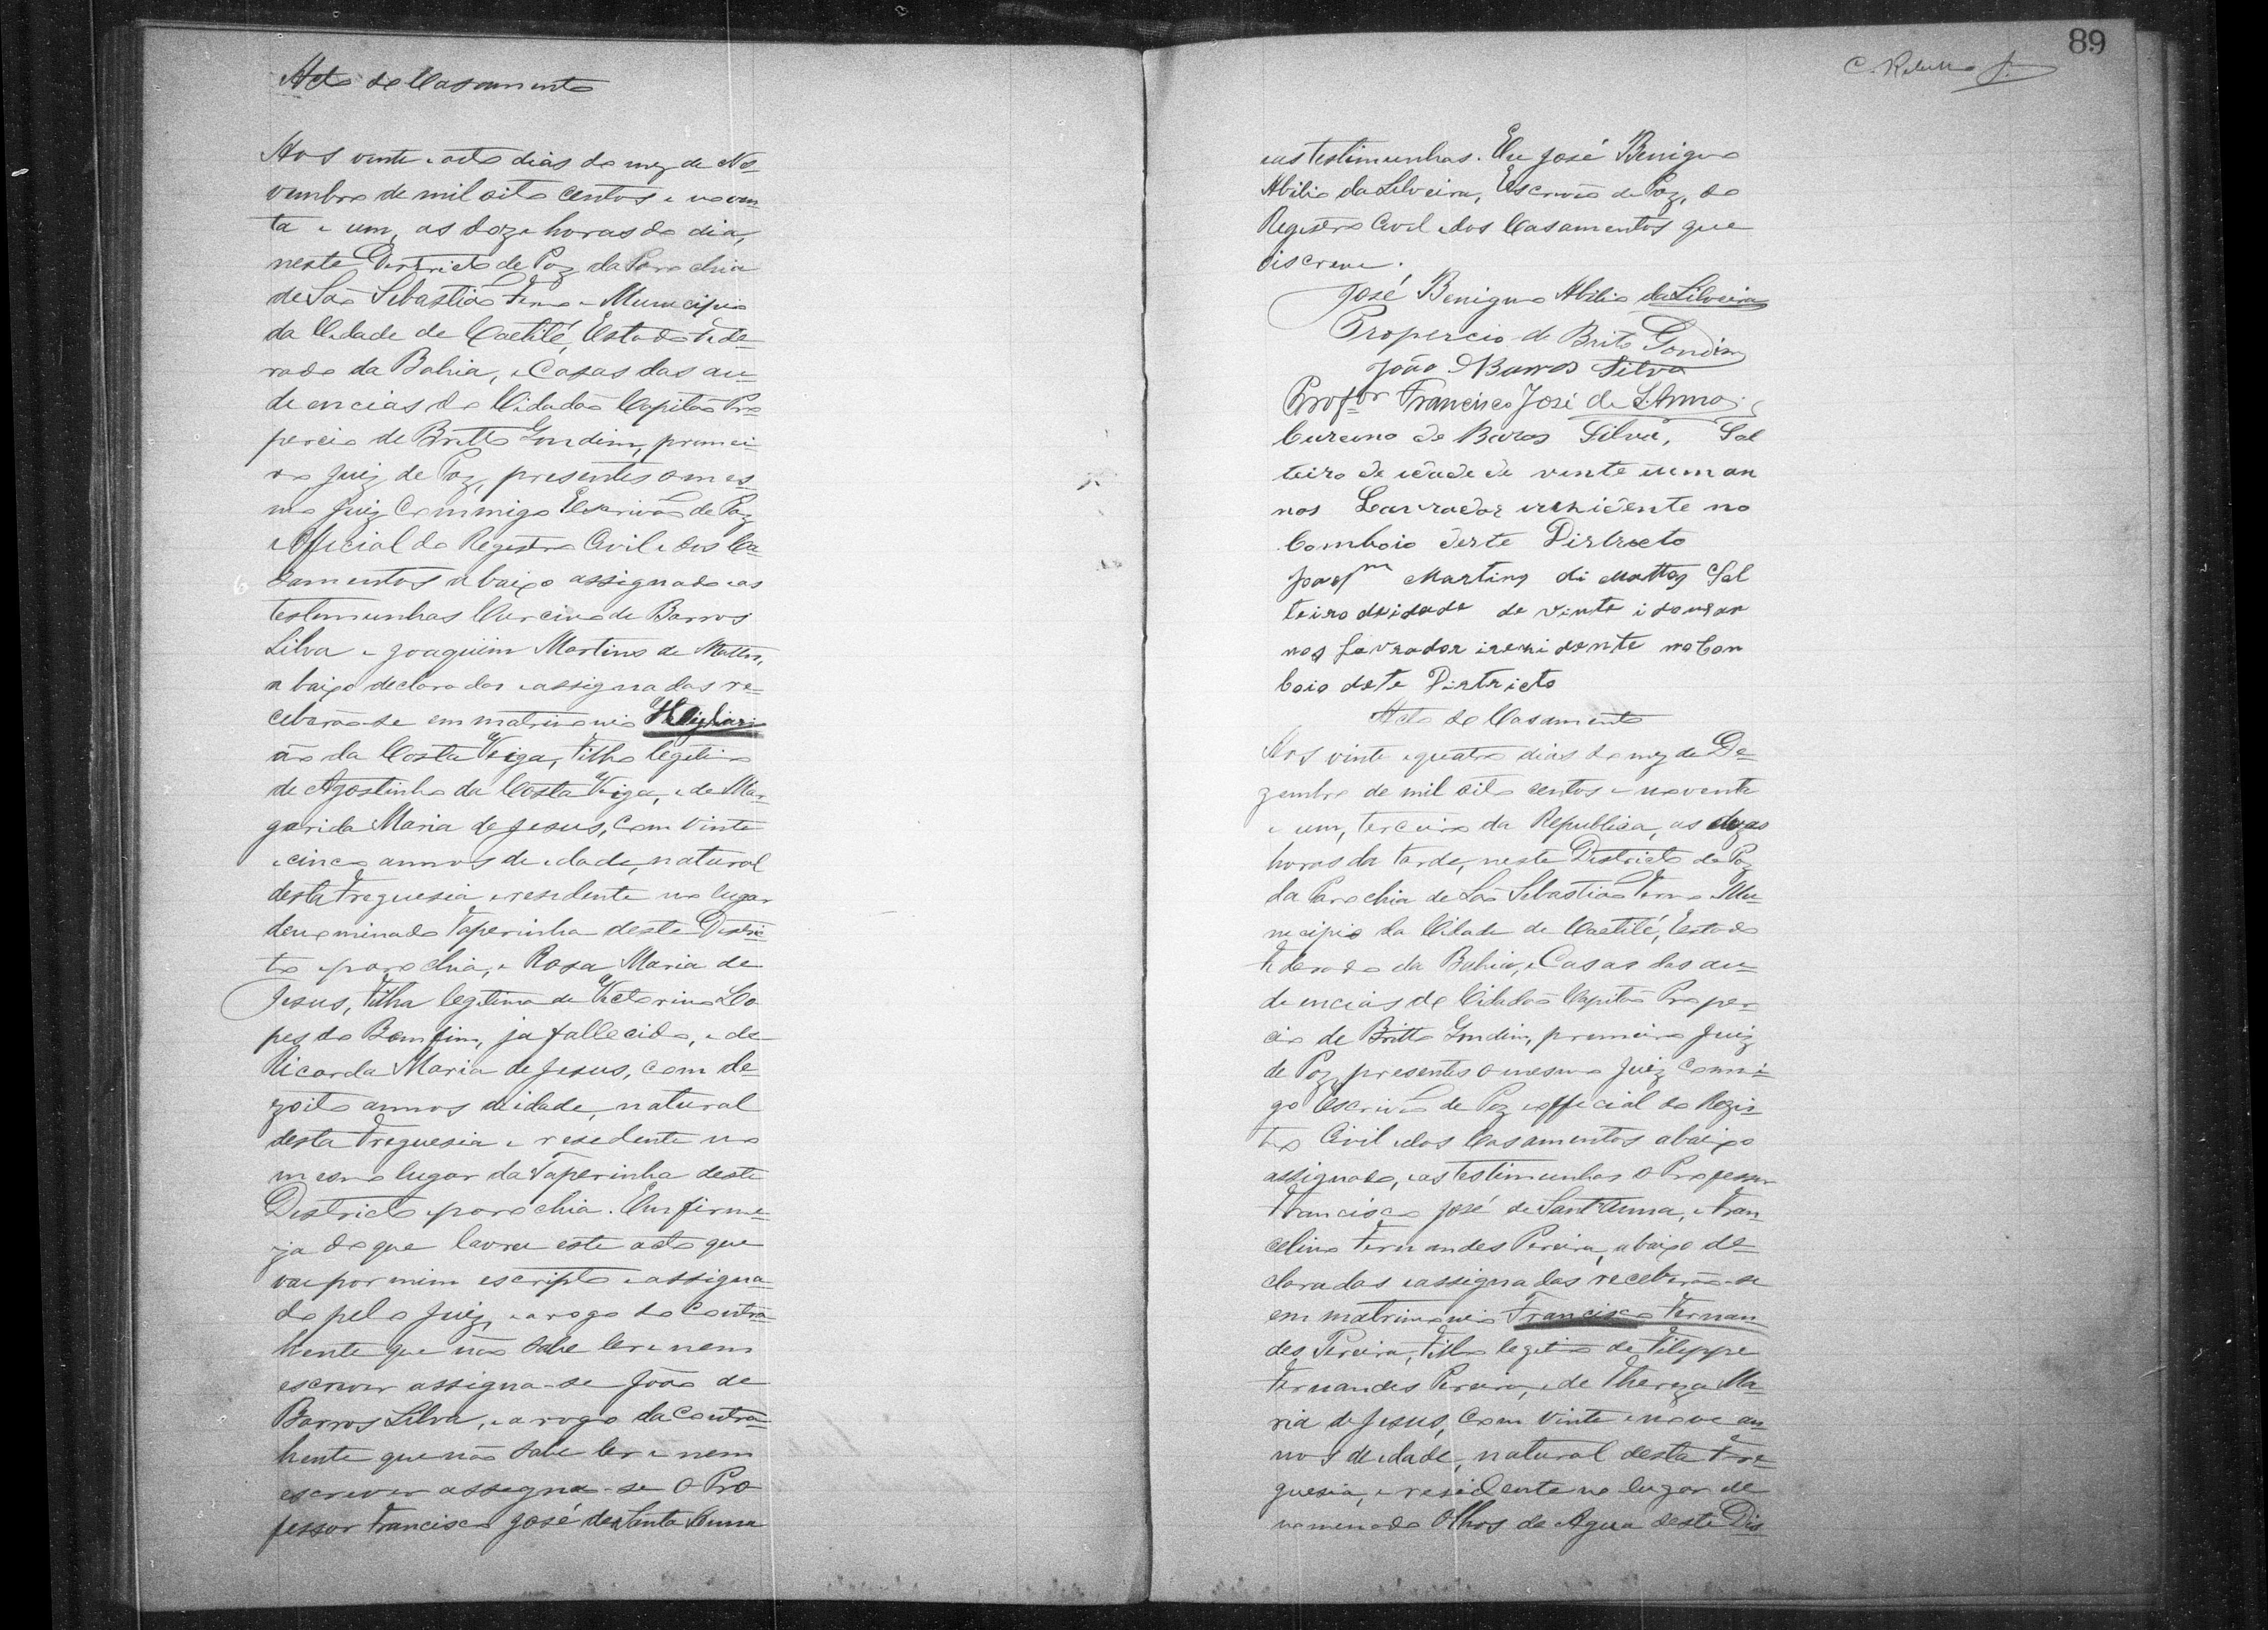 Acto de Casamento
Aos vinte e oito dias do mez de No-
vembro de mil oito centos e noven-
ta e um, as doze horas do dia,
neste Districto de Paz da Parochia
de São Sebastião Termo e Municipio
da Cidade de Caetité, Estado Fede-
rado da Bahia, e Casas das au-
diencias do Cidadão Capitão Pro
percio de Britto Gondim, primei-
ro Juiz de Paz, presentes o mes-
mo Juiz Commigo Escrivão de Paz
e Official do Registro Civil e dos Ca-
samentos abaixo assignado e as
testemunhas Curcino de Barros
Silva e Joaquim Martins de Mattos,
abaixo declaradas e assignadas re-
ceberão-se em matrimonio
ão da Costa Veiga, Filho legitimo
de Agostinho da Costa Veiga, e de Mar-
garida Maria de Jesus, com vinte
e cinco annos de edade, natural
desta Freguesia e residente no lugar
denominado Taperinha deste Distric-
to e parochia, e Rosa Maria de
Jesus, Filha legitima de Victorino Lo
pes do Bomfim, ja fallecido, e de
Ricarda Maria de Jesus, com de-
zoito annos de idade, natural
desta Freguesia e residente no
mesmo lugar da Taperinha deste
Districto e parochia. Em firme-
za do que lavrei este acto que
vai por mim escripto e assigna-
do pelo Juiz, e a rogo do Contra-
hente que não sabe ler e nem
escrever assigna-se João de
Barros Silva, e a rogo da Contra-
hente que não sabe ler e nem
escrever assigna-se o Pro
fessor Francisco José de Santa Anna
89
C. Rebello
e as testimunhas. Eu José Benigno
Abilio da Silveira, Escrivão de Paz, do
Registro Civil e dos Casamentos que
oiscrevi.
José Benigno Abilio da Silveira
Propercio de Brito Gondim
João Barros Silva
Profor Francisco José de S. Anna
Curcino de Baros Silva, Sol
teiro de idade de vente eum an
nos Lavrador irezidente no
Comboio deste Districto
Joaqm Martins di Mattos Sol
teiro deidade de vinte i dous an
nos Lavrador irezidente no Com
boio deste Districto
Acto de Casamento
Aos vinte e quatro dias do mez de De-
zembro de mil oito centos e noventa
e um, terceiro da Republica, as duas
horas da tarde, neste Districto de Paz
da Parochia de São Sebastião Termo e Mu-
nicipio da Cidade de Caetité, Estado
Federado da Bahia, e Casas das au-
diencias do Cidadão Capitão Proper-
cio de Britto Gondim, primeiro Juiz
de Paz, presentes o mesmo Juiz Commi-
go Escrivão de Paz e official do Regis-
tro Civil e dos Casamentos abaixo
assignado, e as testimunhas o Professor
Francisco José de Sant'Anna, e Fran-
celino Fernandes Pereira, abaixo de-
claradas e assignadas receberão-se
em matrimonio Francisco Fernan-
des Pereira, Filho legitimo de Filippe
Fernandes Pereira, e de Thereza Ma-
ria de Jesus, com vinte e nove an-
nos de edade, natural desta Fre-
guesia, e residente no lugar de
nominado Olhos de Agua deste Dis-